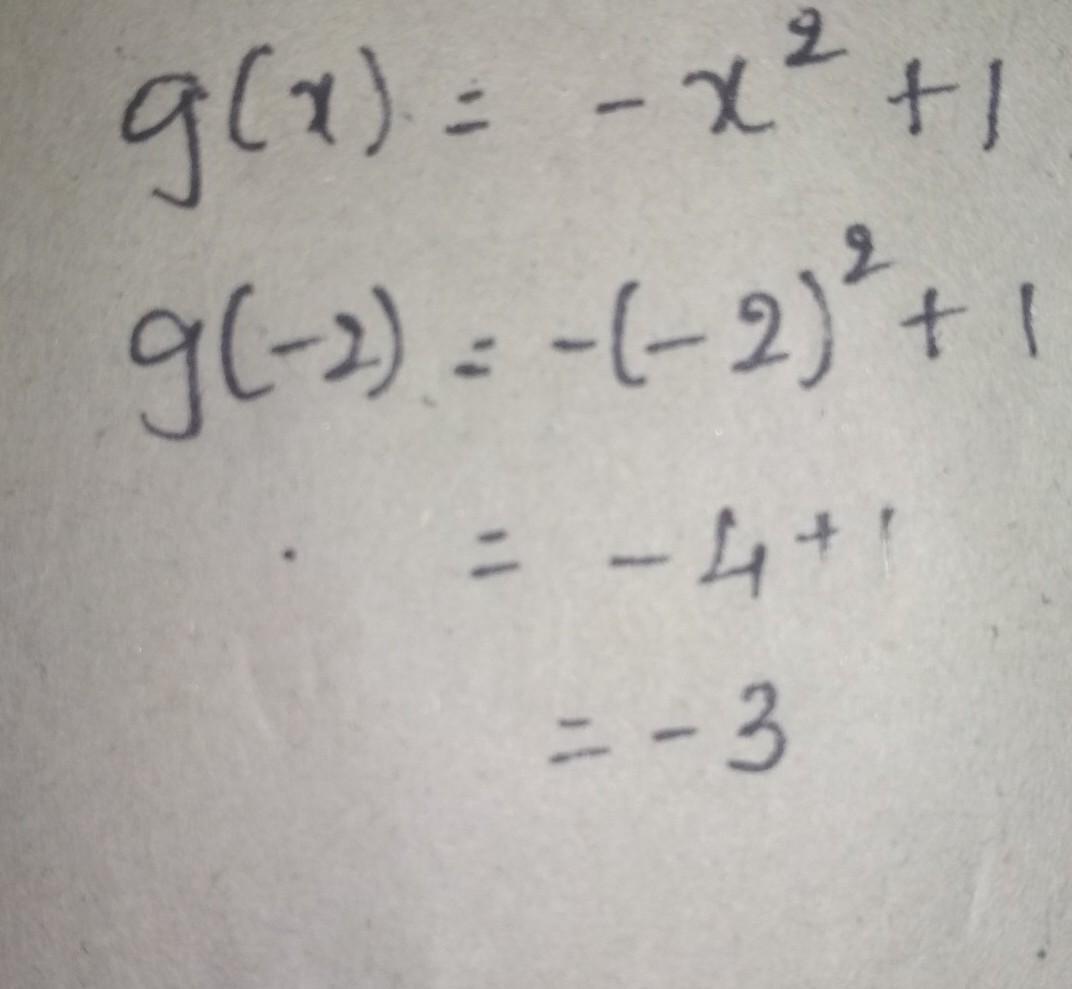 g(x) = -x² + 1
g(-2) = -(-2)² + 1
= -4 + 1
= -3